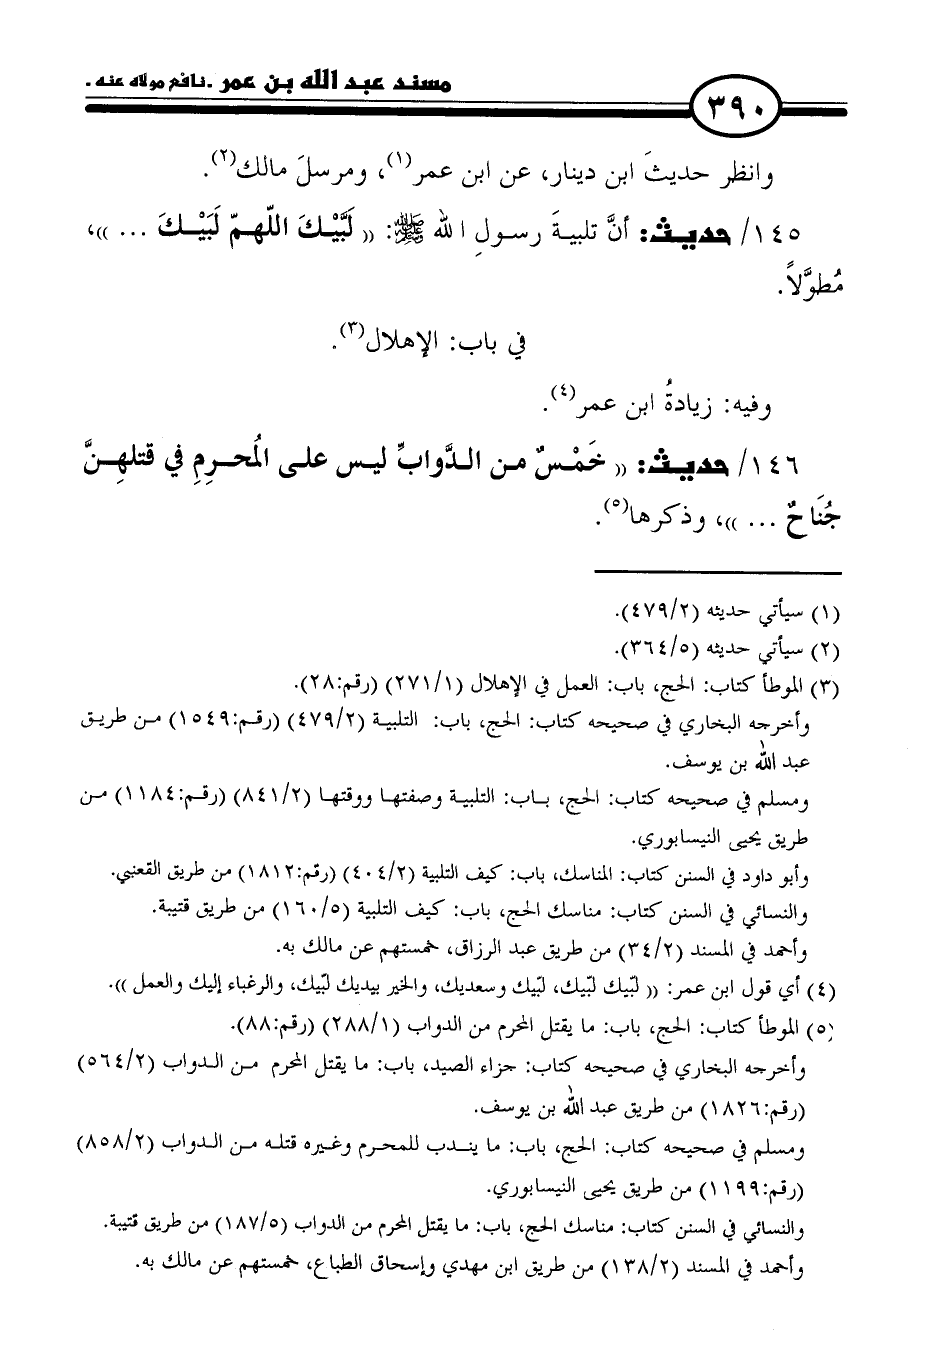 مسند عبد الله بن عمر .نافع مولاه عنه .
٣٩٠
وانظر حديثَ ابن دينار، عن ابن عمر(١)، ومرسلَ مالك(٢).
١٤٥/ حديث: أنَّ تلبيةَ رسولِ الله ﷺ: (( لَبَّيْكَ اللّهمّ لَبَيْكَ ... ))،
مُطوَّلاً.
في باب: الإهلال(٣).
وفيه: زيادةُ ابن عمر(٤).
١٤٦/ حديث: (( خَمْسٌ من الدَّوابِّ ليس على المُحرِمِ في قتلهنَّ
جُنَاحٌ ... ))، وذكرها(٥).
(١) سيأتي حديثه (٤٧٩/٢).
(٢) سيأتي حديثه (٣٦٤/٥).
(٣) الموطأ كتاب: الحج، باب: العمل في الإهلال (٢٧١/١) (رقم:٢٨).
وأخرجه البخاري في صحيحه كتاب: الحج، باب: التلبية (٤٧٩/٢) (رقم:١٥٤٩) من طريق
عبد الله بن يوسف.
ومسلم في صحيحه كتاب: الحج، باب: التلبية وصفتها ووقتها (٨٤١/٢) (رقم:١١٨٤) من
طريق يحيى النيسابوري.
وأبو داود في السنن كتاب: المناسك، باب: كيف التلبية (٤٠٤/٢) (رقم:١٨١٢) من طريق القعنبي.
والنسائي في السنن كتاب: مناسك الحج، باب: كيف التلبية (١٦٠/٥) من طريق قتيبة.
وأحمد في المسند (٣٤/٢) من طريق عبد الرزاق، خمستهم عن مالك به.
(٤) أي قول ابن عمر: (( لبّيك لبّيك، لبّيك وسعديك، والخير بيديك لبّيك، والرغباء إليك والعمل )).
(٥) الموطأ كتاب: الحج، باب: ما يقتل المحرم من الدواب (٢٨٨/١) (رقم:٨٨).
وأخرجه البخاري في صحيحه كتاب: جزاء الصيد، باب: ما يقتل المحرم من الدواب (٥٦٤/٢)
(رقم:١٨٢٦) من طريق عبد الله بن يوسف.
ومسلم في صحيحه كتاب: الحج، باب: ما يندب للمحرم وغيره قتله من الدواب (٨٥٨/٢)
(رقم:١١٩٩) من طريق يحيى النيسابوري.
والنسائي في السنن كتاب: مناسك الحج، باب: ما يقتل المحرم من الدواب (١٨٧/٥) من طريق قتيبة.
وأحمد في المسند (١٣٨/٢) من طريق ابن مهدي وإسحاق الطباع، خمستهم عن مالك به.